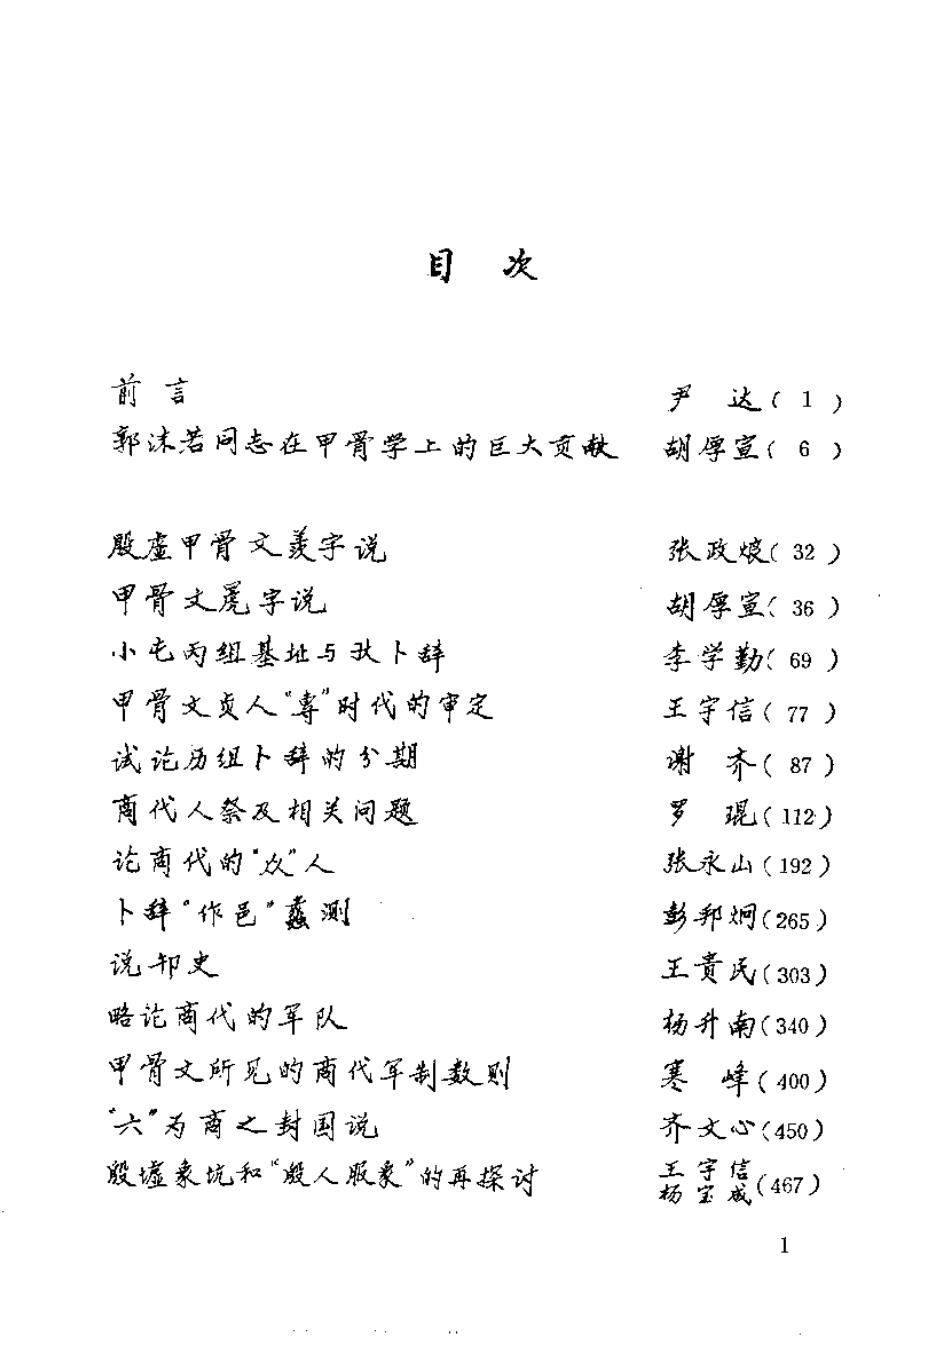 目 次
前 言 尹 达( 1 )
郭沫若同志在甲骨学上的巨大贡献 胡厚宣( 6 )
殷虚甲骨文羡字说 张政烺( 32 )
甲骨文 字说 胡厚宣( 36 )
小屯丙组基址与 卜辞 李学勤( 69 )
甲骨文贞人“専”时代的审定 王宇信( 77 )
试论历组卜辞的分期 谢 齐( 87 )
商代人祭及相关问题 罗 琨(112)
论商代的“众”人 张永山(192)
卜辞“作邑”蠡测 彭邦炯(265)
说卸史 王贵民(303)
略论商代的军队 杨升南(340)
甲骨文所见的商代军制数则 寒 峰(400)
“六”为商之封国说 齐文心(450)
殷墟象坑和“殷人服象”的再探讨 王宇信 杨宝成(467)
1